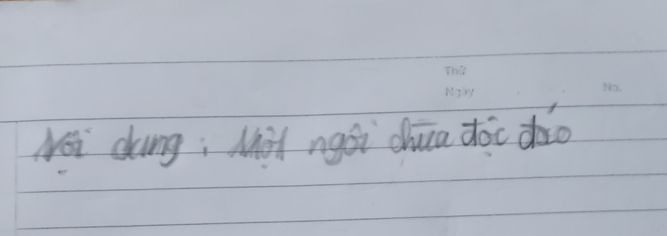 Thứ
Ngày
No.
Nội dung : Một ngôi chùa độc đáo